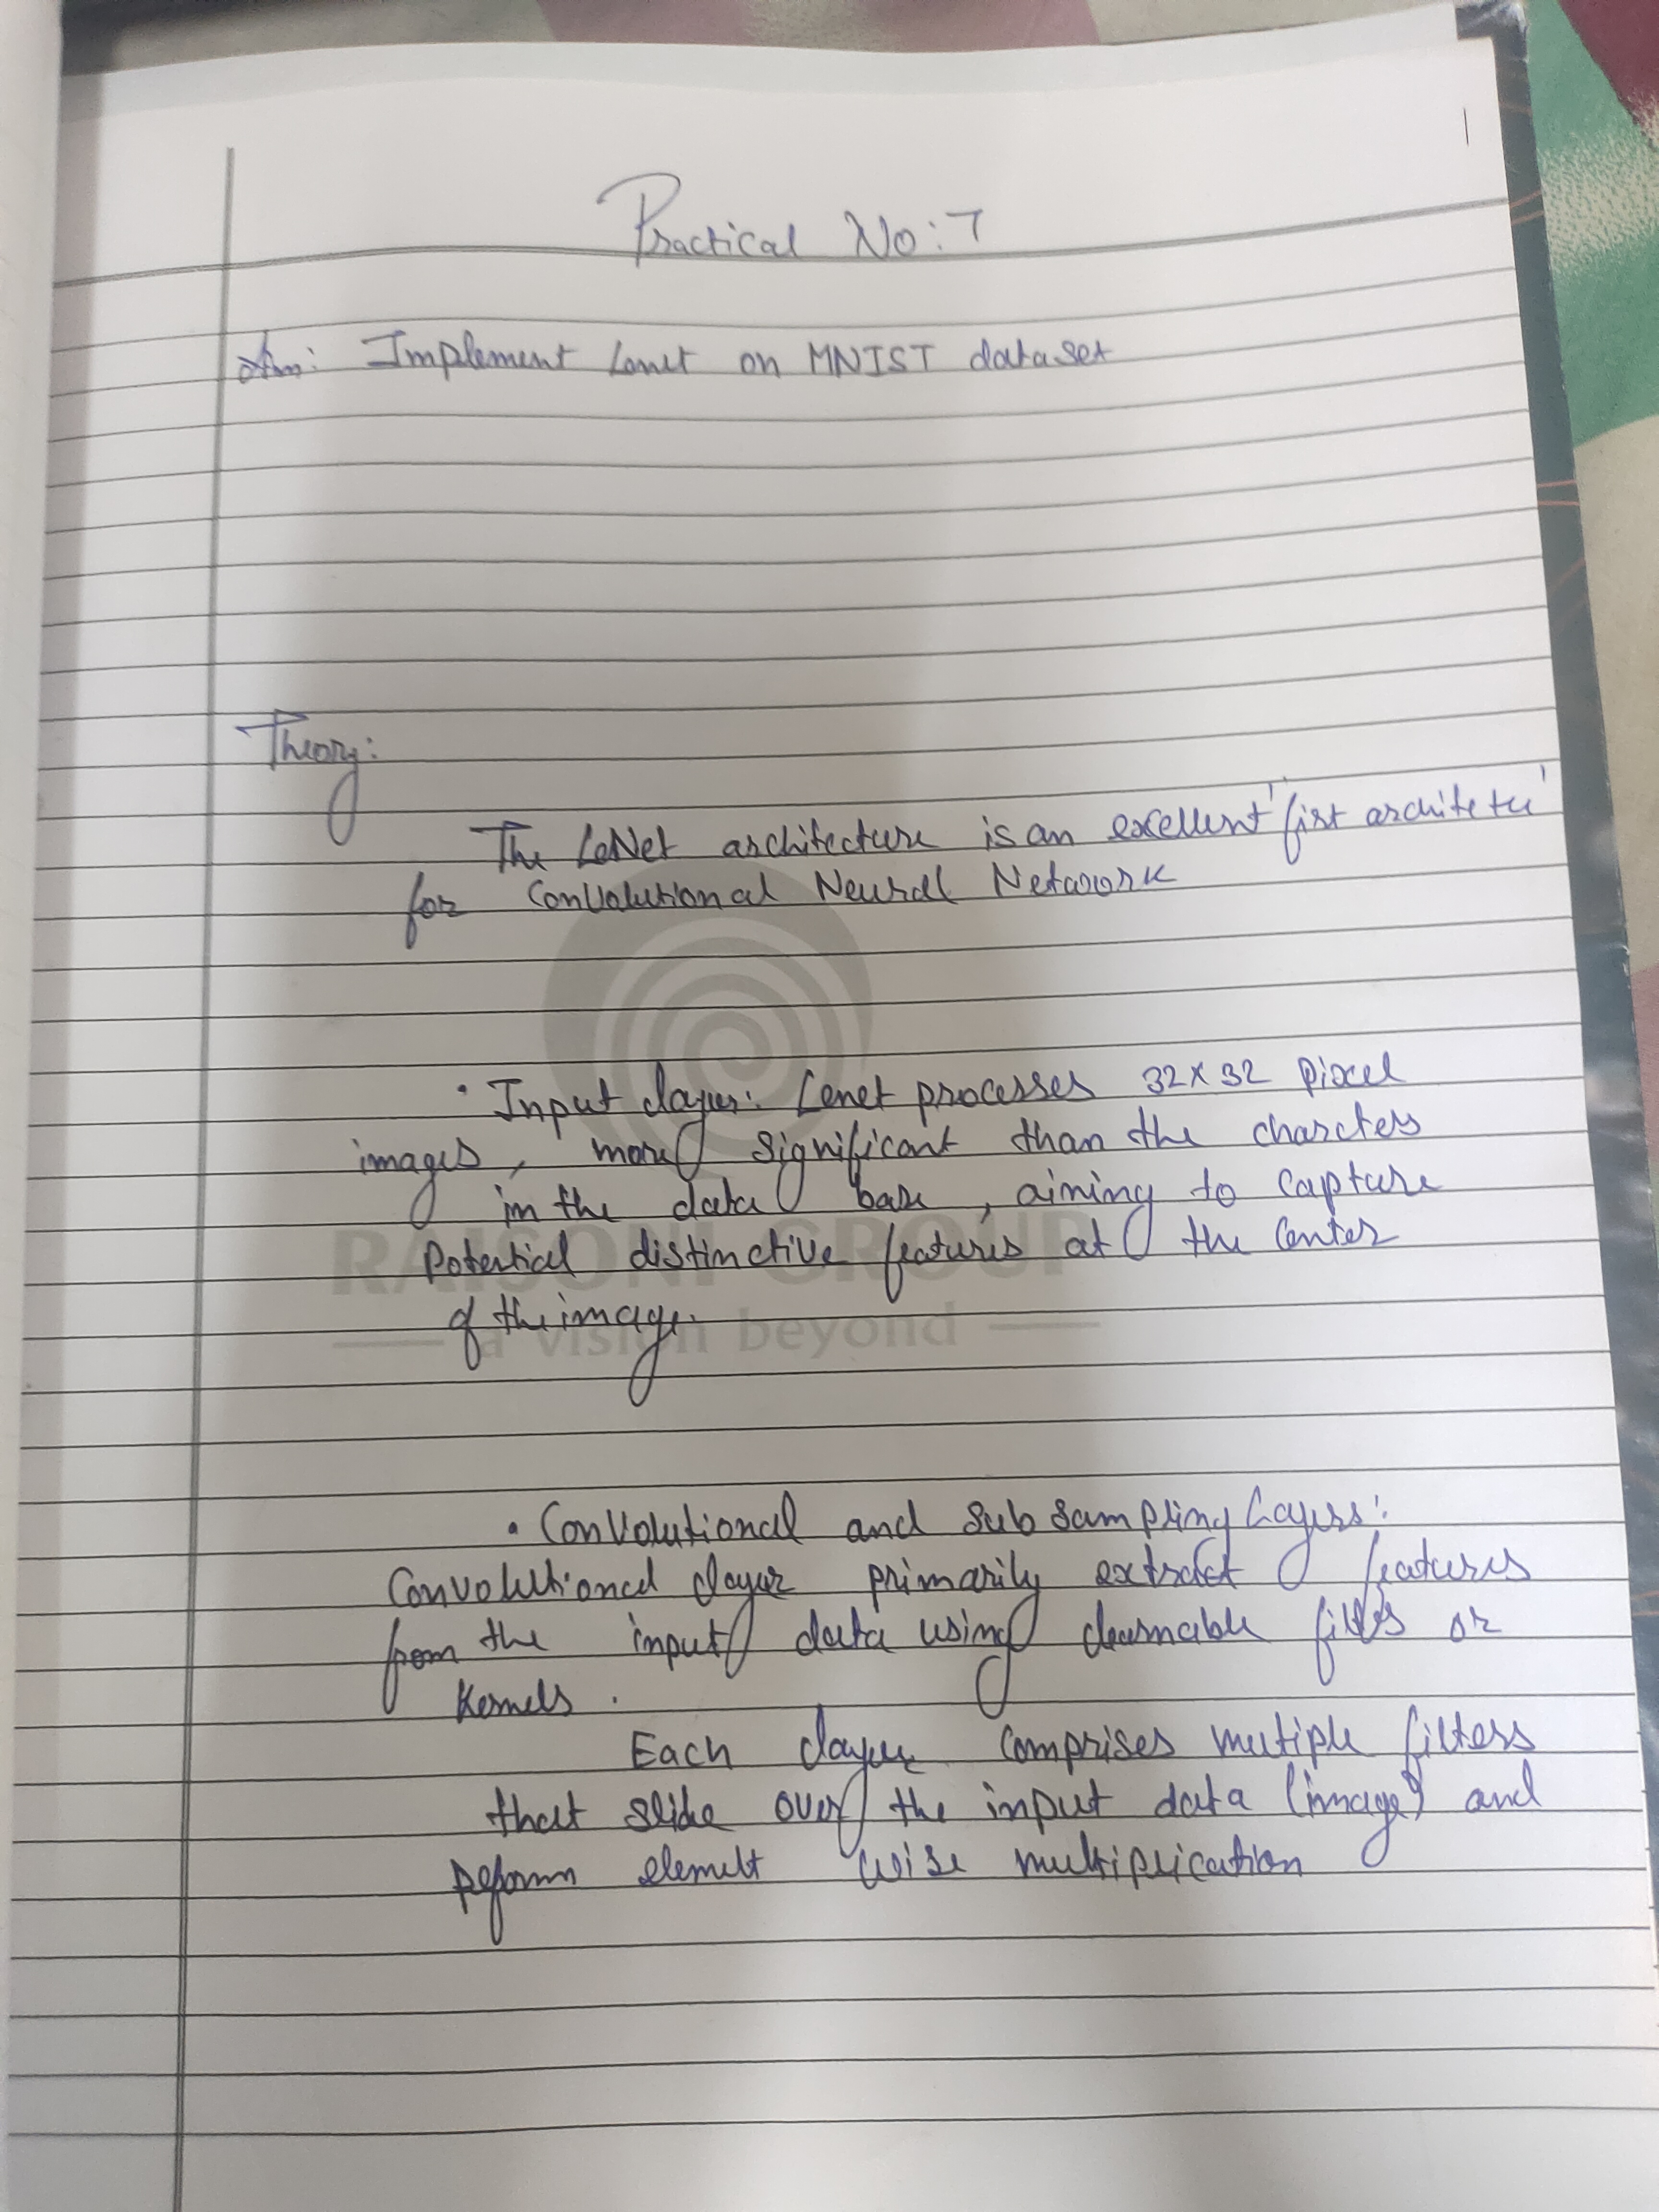 Practical No: 7
Aim: Implement Lenet on MNIST dataset
Theory:
The LeNet architecture is an excellent 'first architetu'
for Convolutional Neural Network
• Input layer: Lenet processes 32x32 pixel
images, more significant than the charcters
in the data base, aiming to capture
potential distinctive features at the center
of the image.
RAISONI GROUP
— a vision beyond —
• Convolutional and Sub Sampling Layers:
Convolutional layer primarily extract features
from the input data using learnable filters or
Kernels.
Each layer comprises multiple filters
that slide over the input data (image) and
peform elemelt wise multiplication